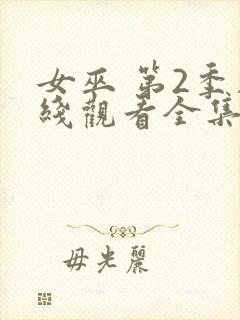 女巫 第2季
綫觀看全集
毋光麗